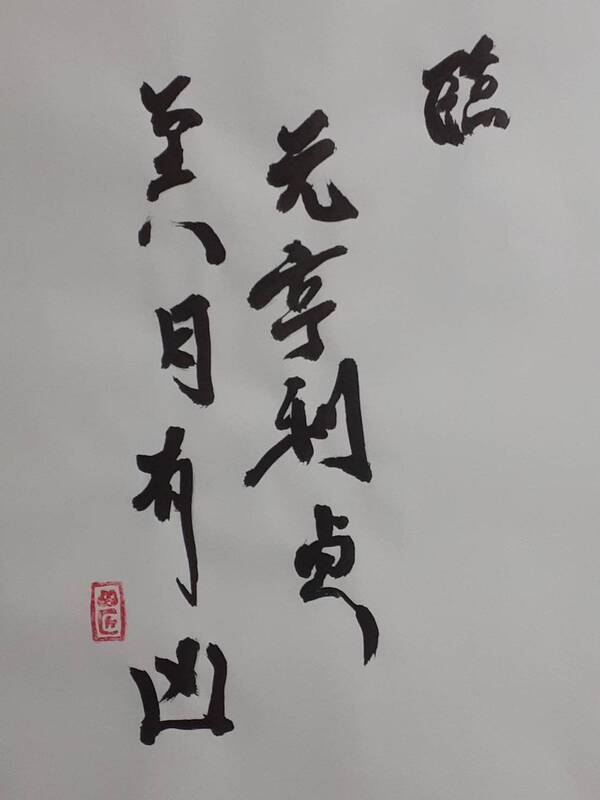 臨
元亨利貞
至八月有凶